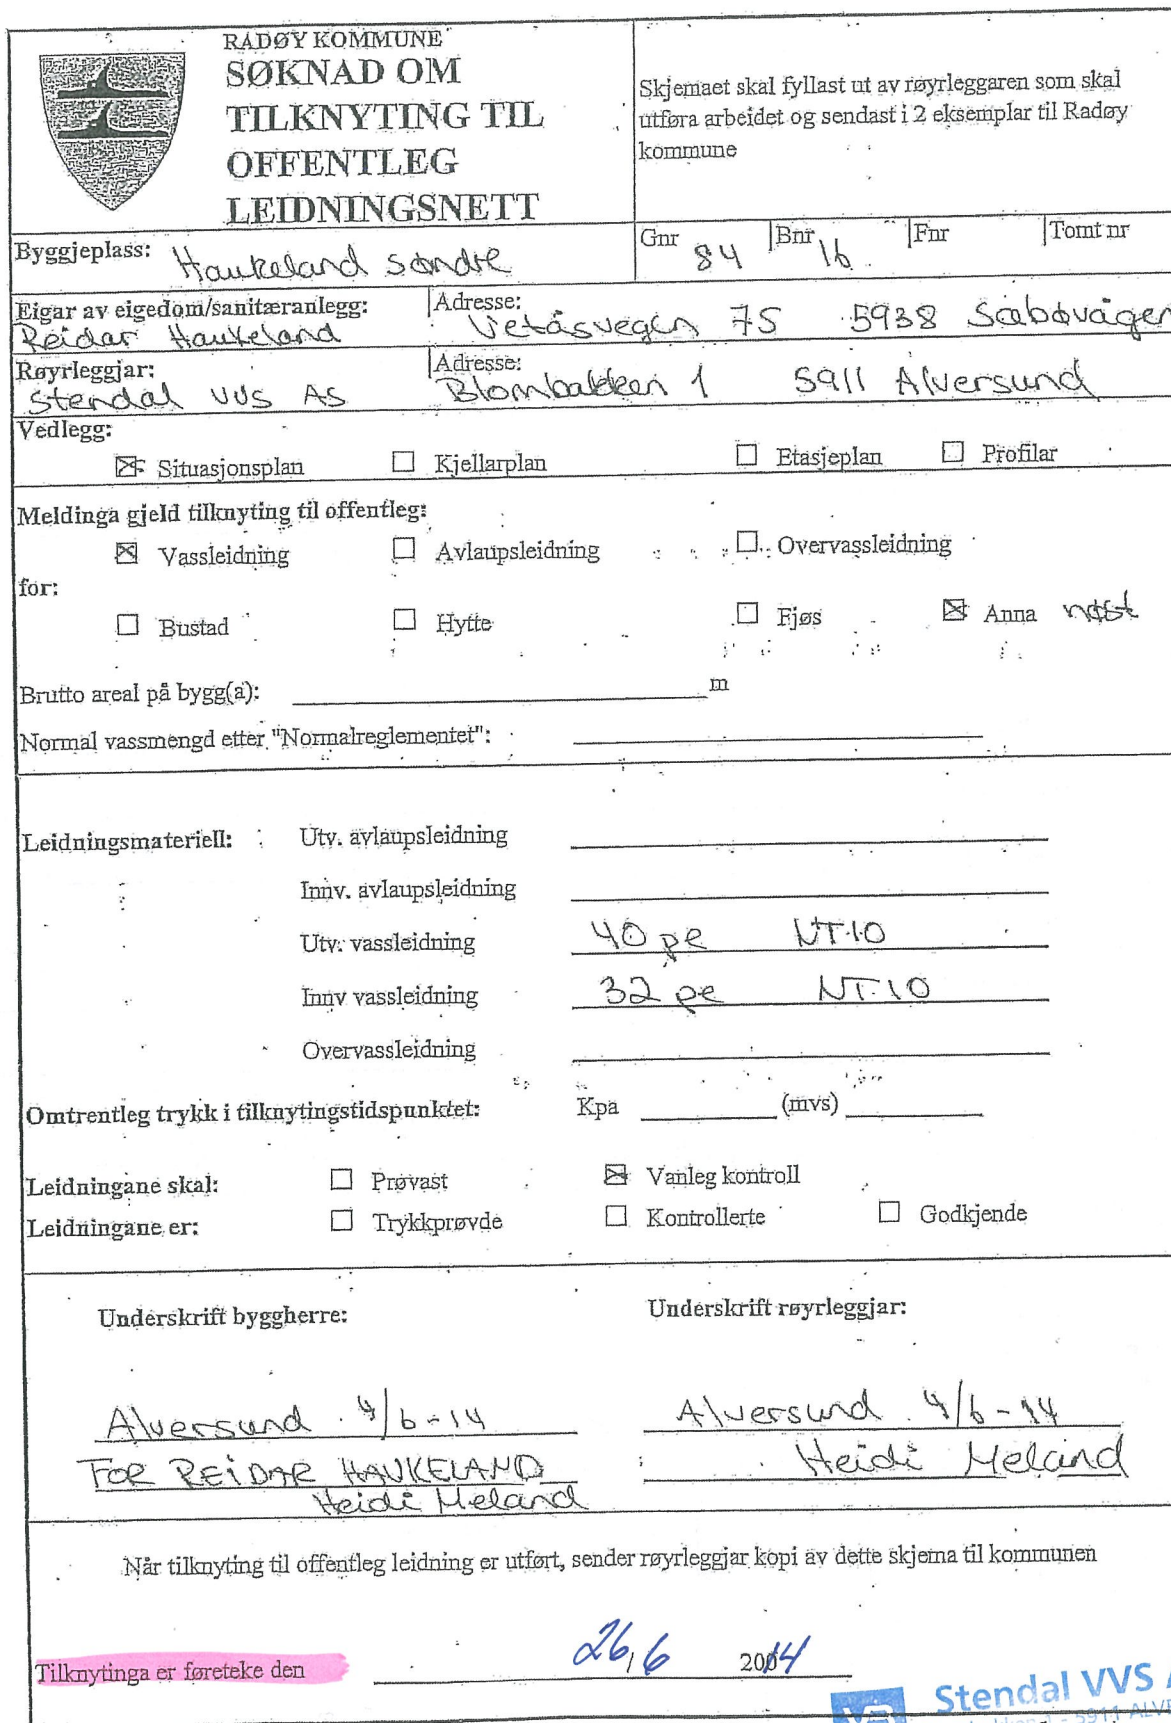 RADØY KOMMUNE
SØKNAD OM
TILKNYTING TIL
OFFENTLEG
LEIDNINGSNETT
Skjemaet skal fyllast ut av røyrleggaren som skal
utføra arbeidet og sendast i 2 eksemplar til Radøy
kommune
Byggjeplass: Haukeland søndre
Gnr 84 Bnr 16 Fnr Tomt nr
Eigar av eigedom/sanitæranlegg: Adresse:
Reidar Haukeland Vetåsvegen 75 5938 Sæbøvågen
Røyrleggjar: Adresse:
Stendal VVS AS Blombakken 1 5911 Alversund
Vedlegg:
☒ Situasjonsplan ☐ Kjellarplan ☐ Etasjeplan ☐ Profilar
Meldinga gjeld tilknyting til offentleg:
☒ Vassleidning ☐ Avlaupsleidning ☐ Overvassleidning
for:
☐ Bustad ☐ Hytte ☐ Fjøs ☒ Anna nøst
Brutto areal på bygg(a): m
Normal vassmengd etter "Normalreglementet":
Leidningsmateriell: Utv. avlaupsleidning
Innv. avlaupsleidning
Utv. vassleidning 40 pe NT10
Innv vassleidning 32 pe NT10
Overvassleidning
Omtrentleg trykk i tilknytingstidspunktet: Kpa (mvs)
Leidningane skal: ☐ Prøvast ☒ Vanleg kontroll
Leidningane er: ☐ Trykkprøvde ☐ Kontrollerte ☐ Godkjende
Underskrift byggherre: Underskrift røyrleggjar:
Alversund 4/6-14 Alversund 4/6-14
FOR REIDAR HAUKELAND Heidi Meland
Heidi Meland
Når tilknyting til offentleg leidning er utført, sender røyrleggjar kopi av dette skjema til kommunen
Tilknytinga er føreteke den 26,6 2014
Stendal VVS A
5911 ALVE